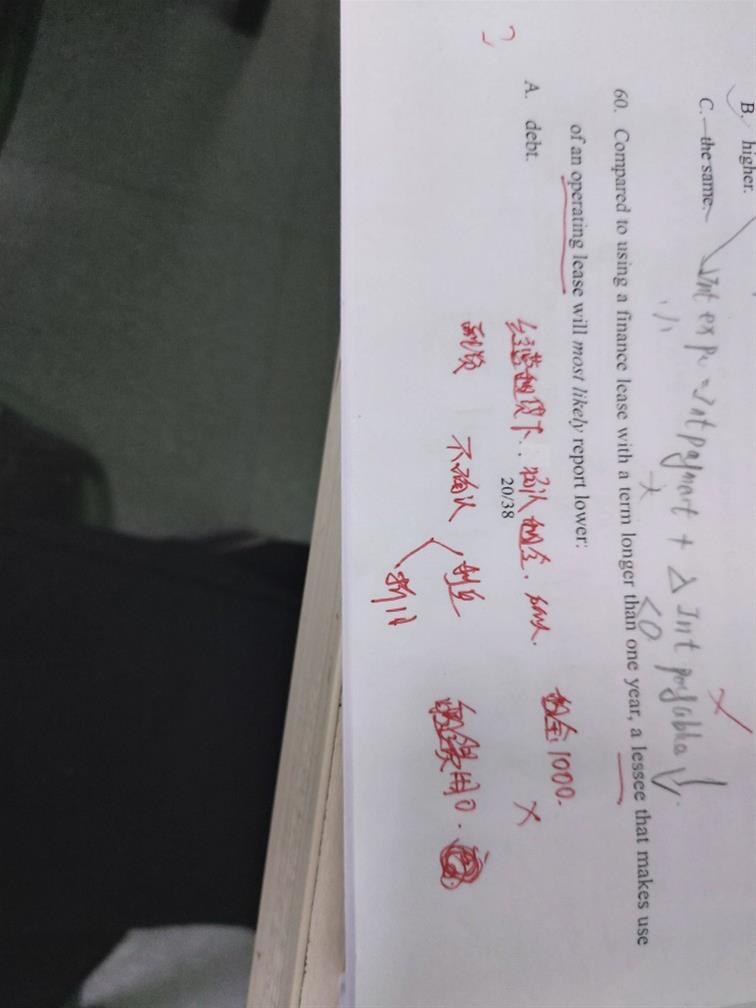 B. higher.
C. the same.
Int exp = Int payment + Δ Int payable ↓
<0
60. Compared to using a finance lease with a term longer than one year, a lessee that makes use
of an operating lease will most likely report lower:
A. debt.
经营租赁下, 确认租金,
租金1000.
20/38
融资 不确认 租金
折旧
用0.